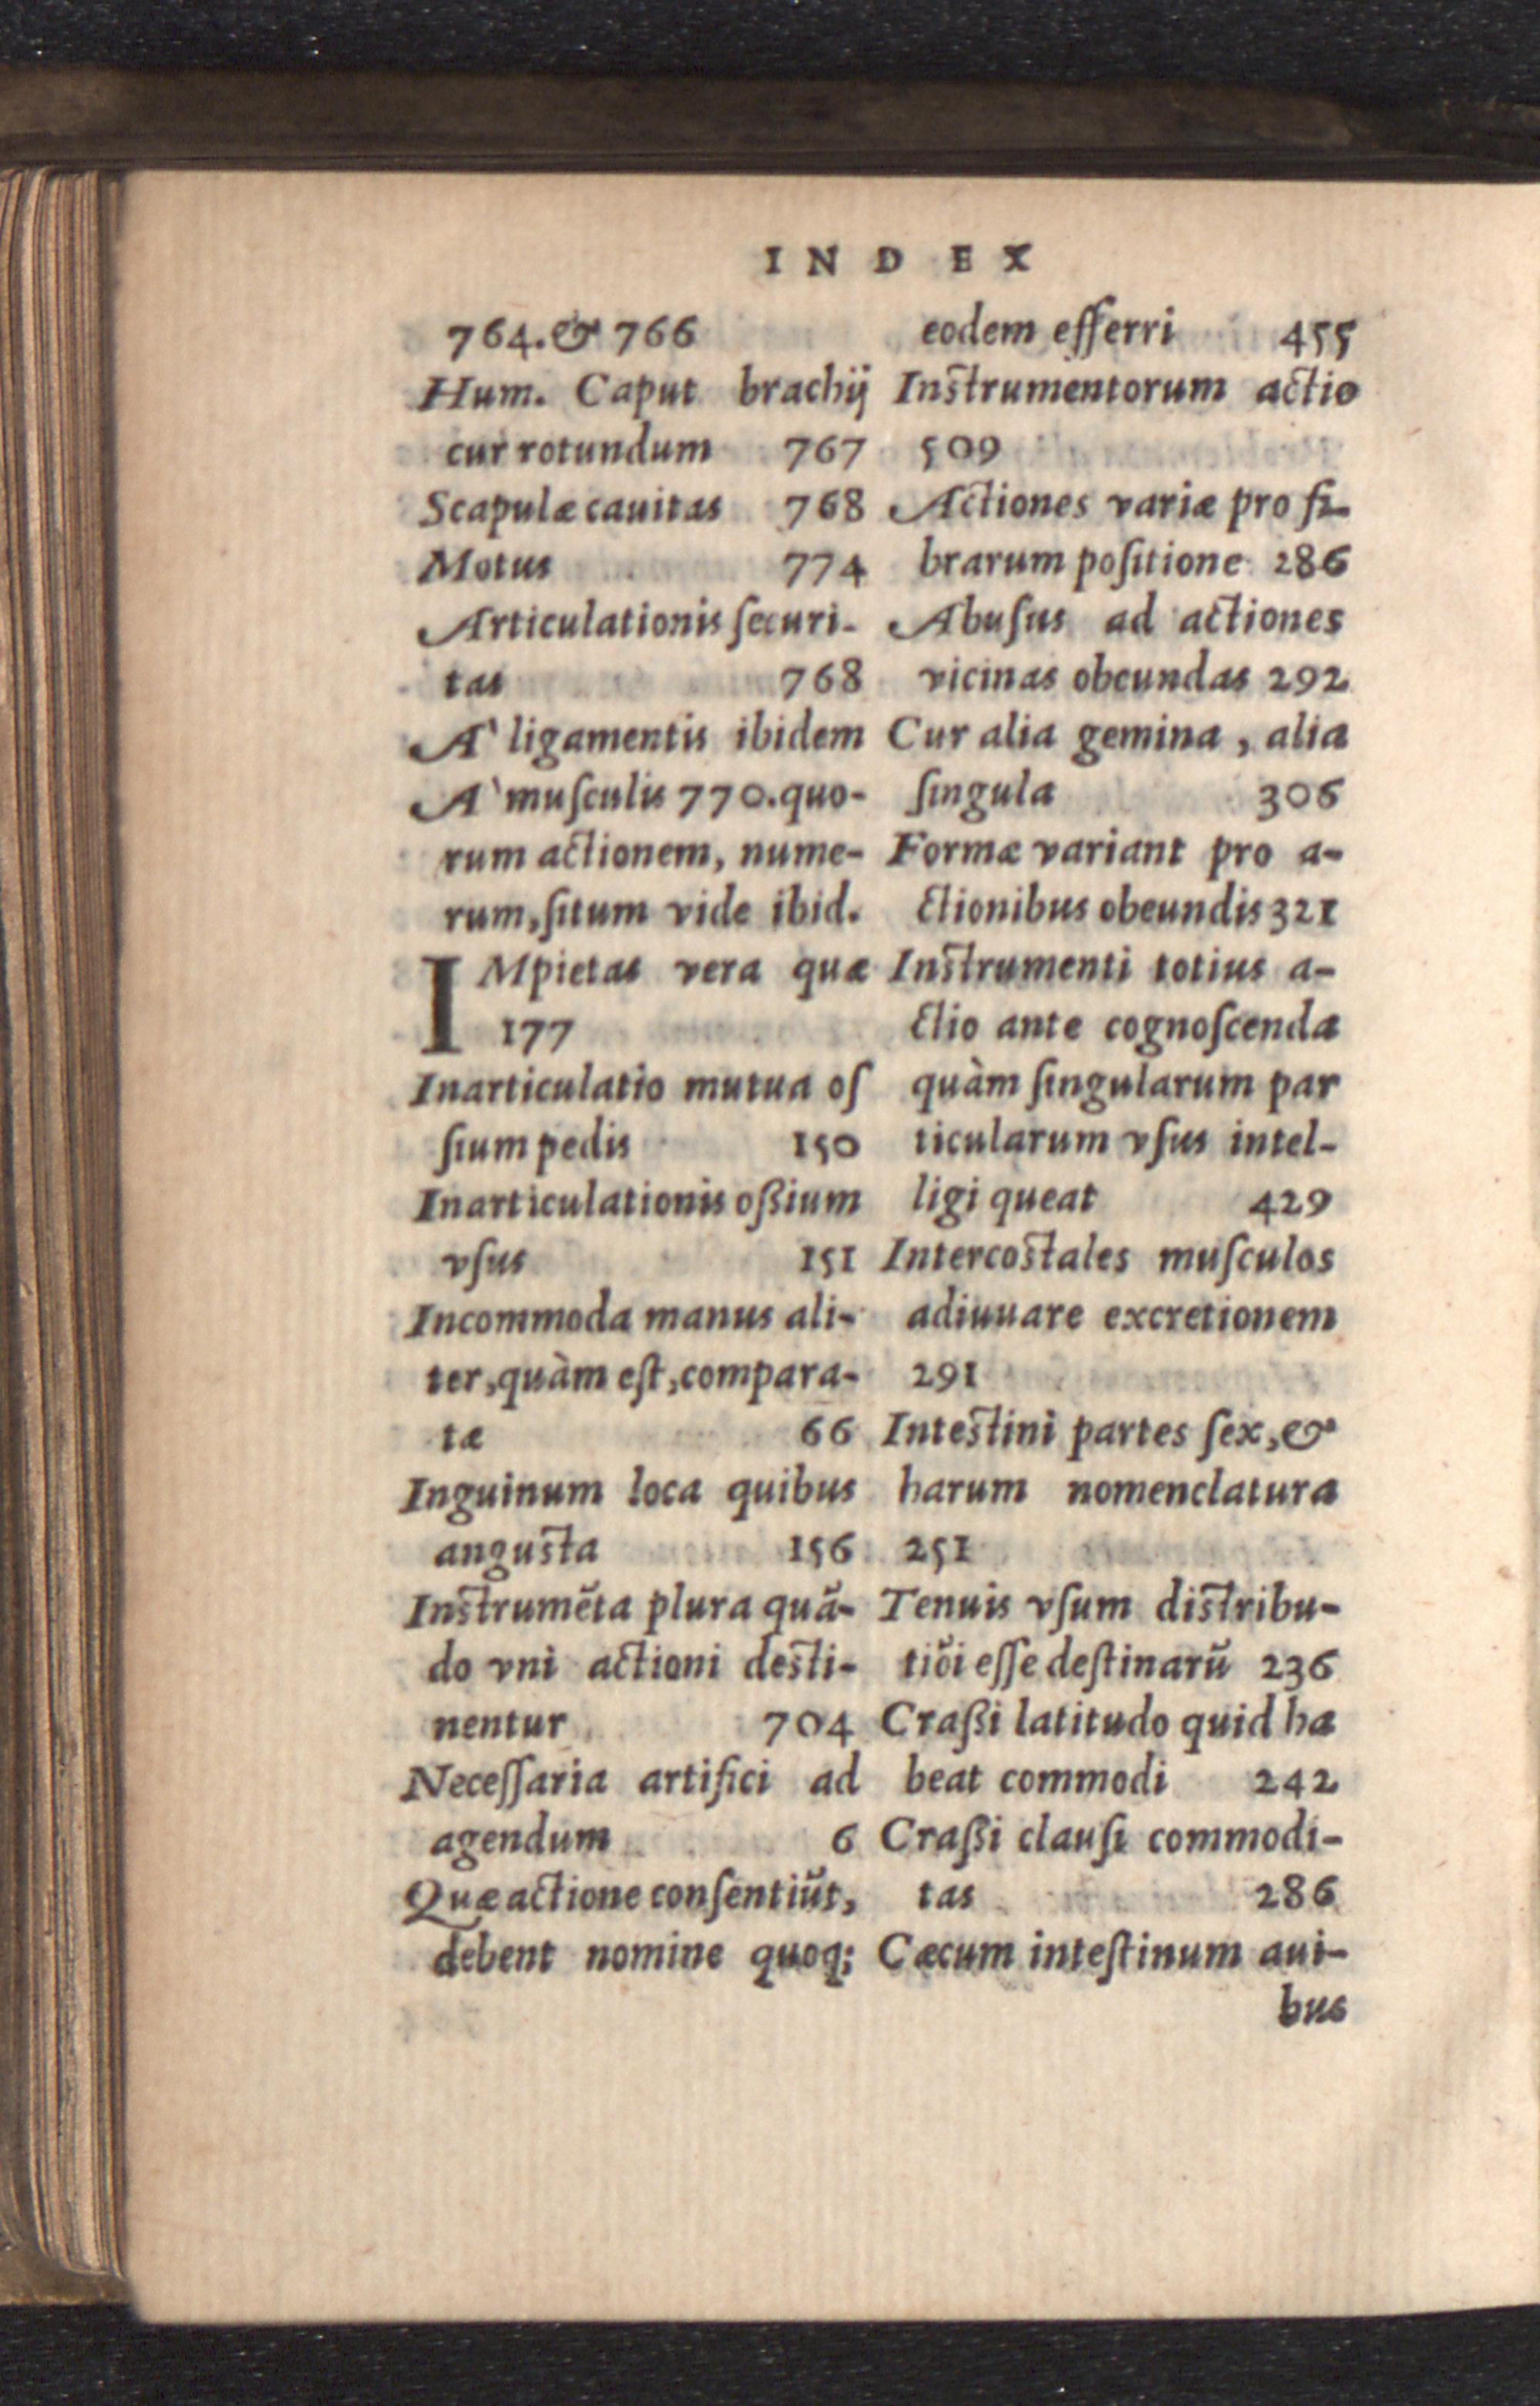 INDEX
764.& 766
Hum. Caput brachij
cur rotundum 767
Scapulæ cauitas 768
Motus 774
Articulationis ſecuri-
tas 768
A` ligamentis ibidem
A` muſculis 770.quo-
rum actionem, nume-
rum,ſitum vide ibid.
IMpietas vera quæ
177
Inarticulatio mutua oſ
ſium pedis 150
Inarticulationis oßium
vſus 151
Incommoda manus ali-
ter,quàm eſt,compara-
tæ 66
Inguinum loca quibus
anguſta 156
Inſtrumēta plura quā-
do vni actioni deſti-
nentur 704
Neceſſaria artifici ad
agendum 6
Quæ actione conſentiūt,
debent nomine quoq;
eodem efferri 455
Inſtrumentorum actio
509
Actiones variæ pro fi-
brarum poſitione 286
Abuſus ad actiones
vicinas obeundas 292
Cur alia gemina , alia
ſingula 306
Formæ variant pro a-
ctionibus obeundis 321
Inſtrumenti totius a-
ctio ante cognoſcenda
quàm ſingularum par
ticularum vſus intel-
ligi queat 429
Intercoſtales muſculos
adiuuare excretionem
291
Inteſtini partes ſex,&
harum nomenclatura
251
Tenuis vſum diſtribu-
tiōi eſſe deſtinarū 236
Craßi latitudo quid ha
beat commodi 242
Craßi clauſi commodi-
tas 286
Cæcum inteſtinum aui-
bus